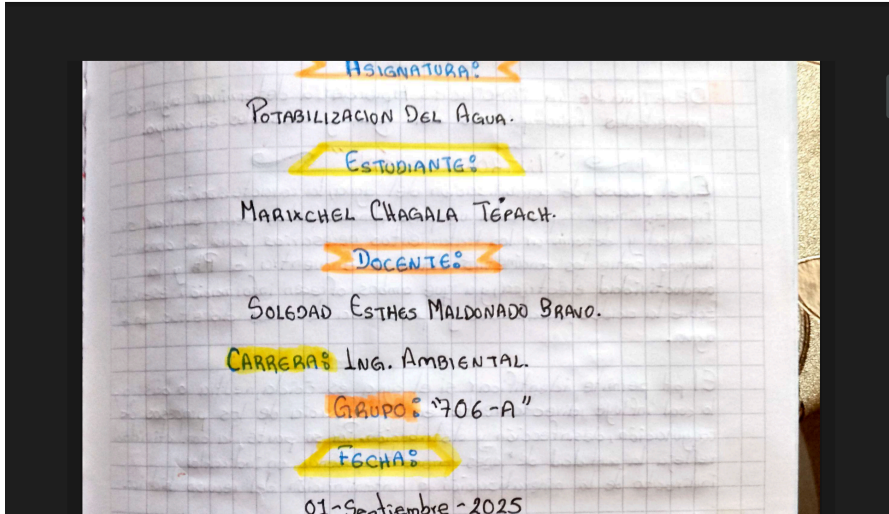 ASIGNATURA:
POTABILIZACION DEL AGUA.
ESTUDIANTE:
MARIXCHEL CHAGALA TÉPACH.
DOCENTE:
SOLEDAD ESTHES MALDONADO BRAVO.
CARRERA: ING. AMBIENTAL.
GRUPO: "706-A"
FECHA:
01-Septiembre-2025